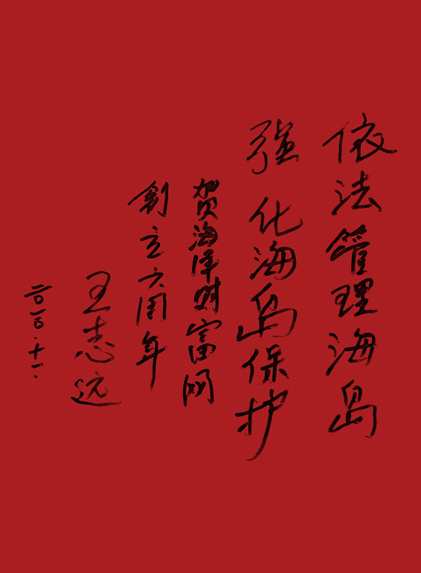 依法管理海岛
强化海岛保护
贺海洋财富网
创立六周年
王志远
二〇一〇.十一.